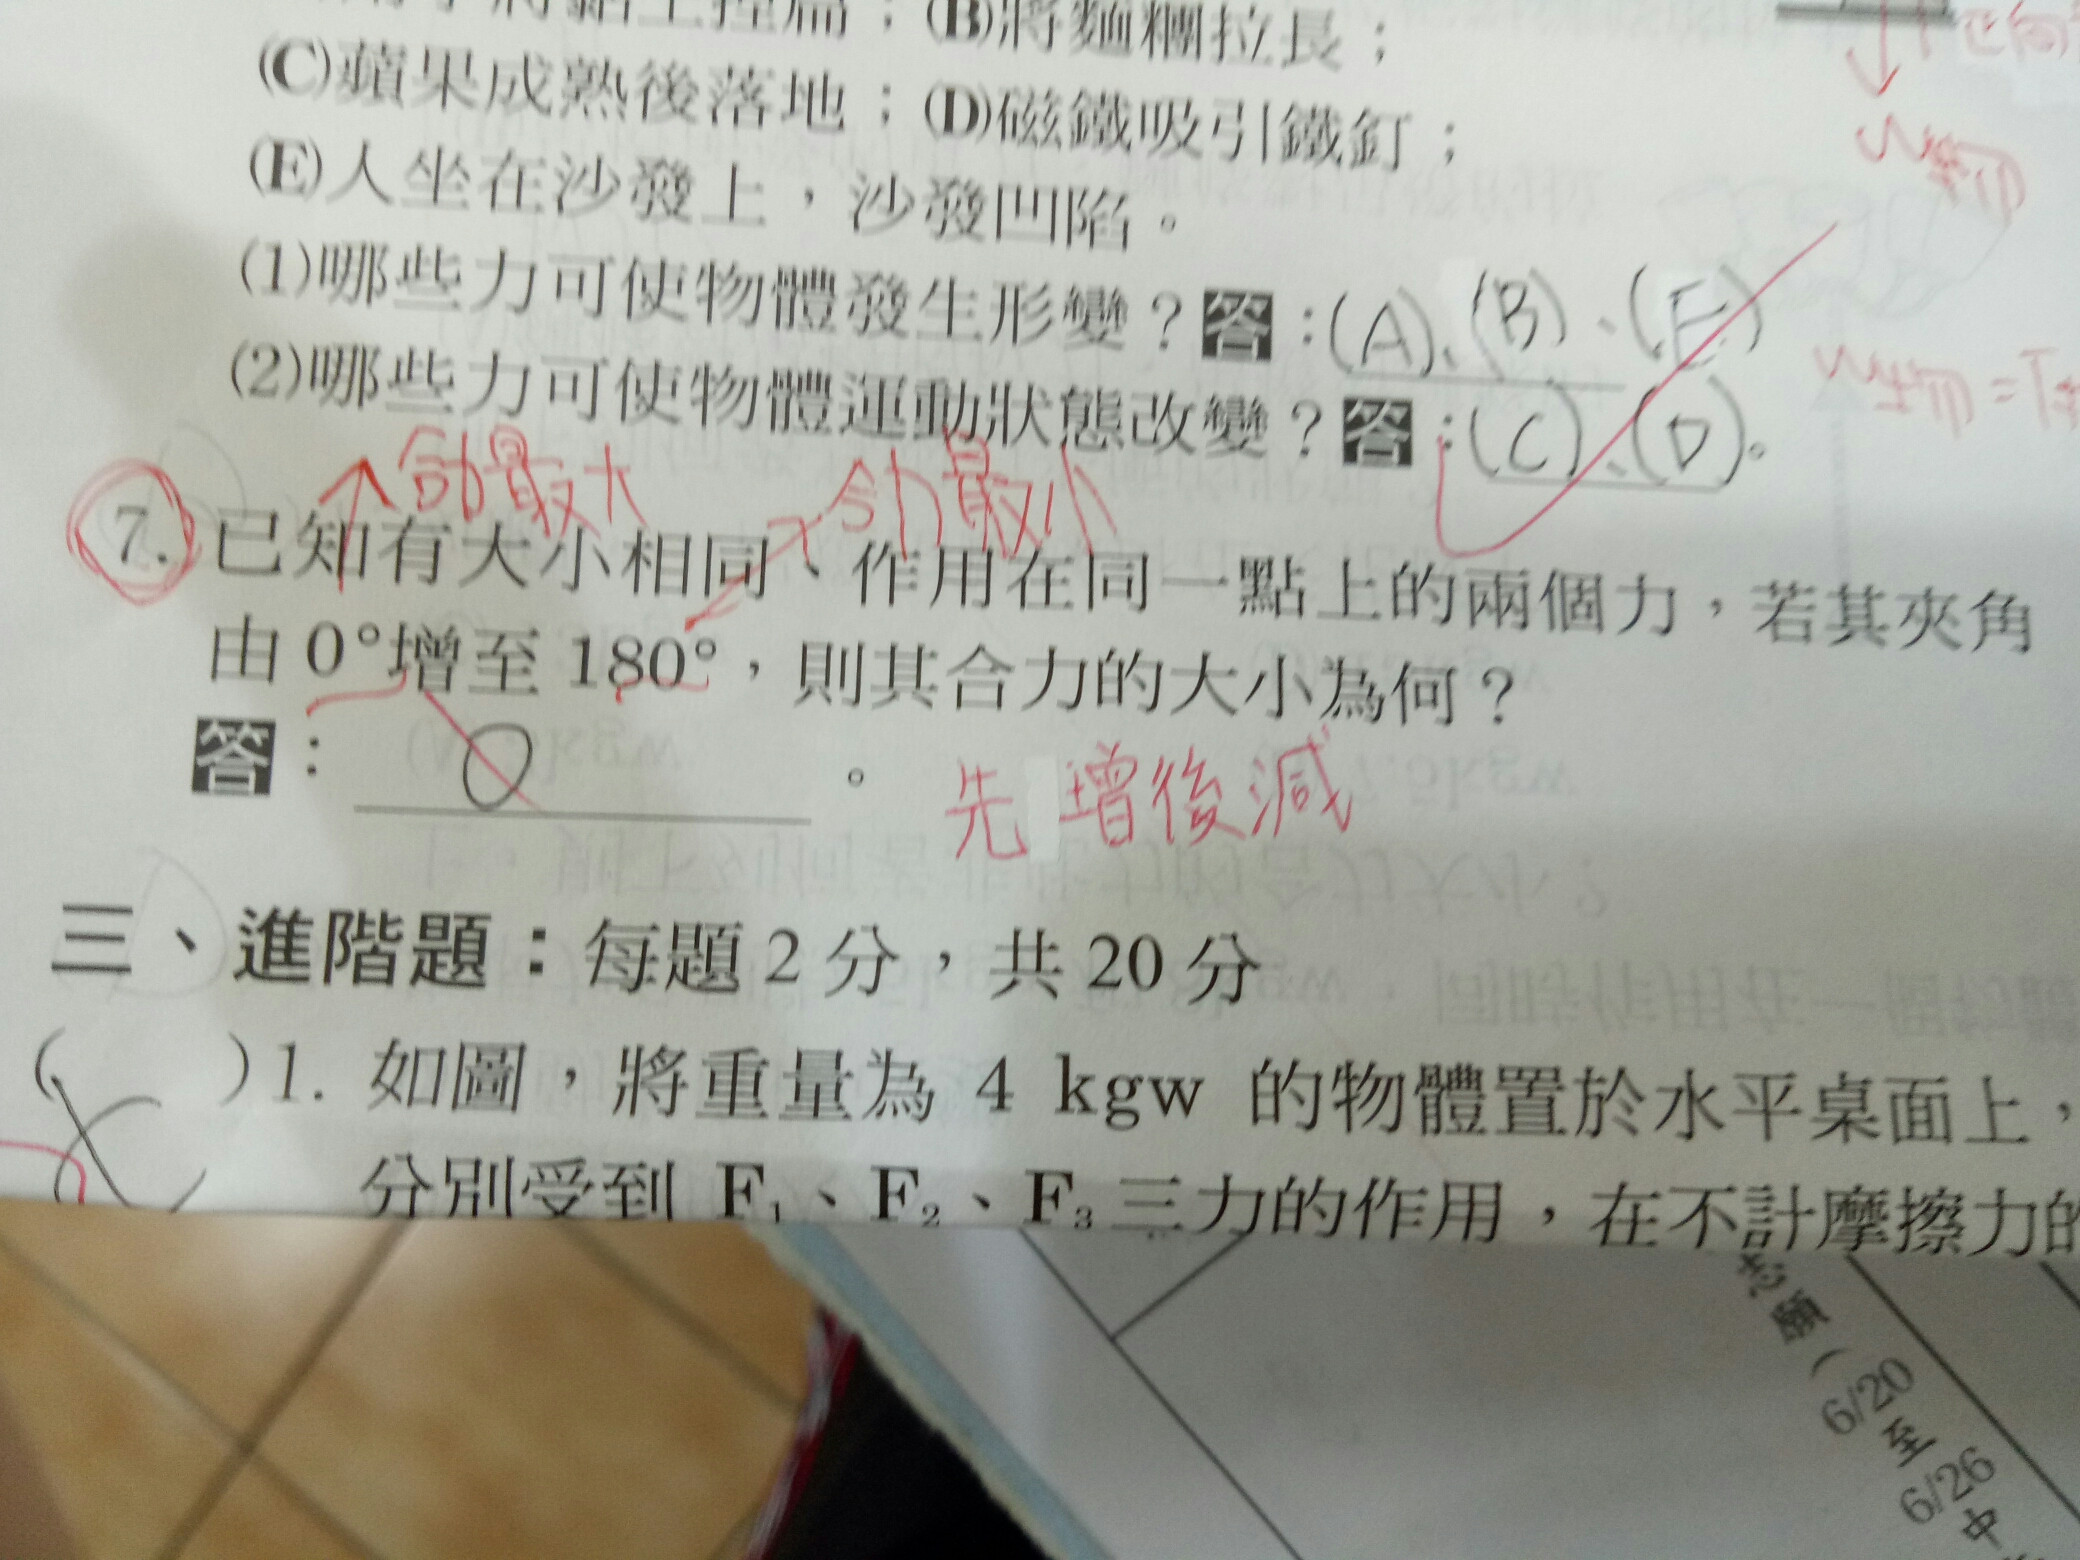 (B)將麵糰拉長；
(C)蘋果成熟後落地；(D)磁鐵吸引鐵釘；
(E)人坐在沙發上，沙發凹陷。
(1)哪些力可使物體發生形變？答：(A)、(B)、(E)
(2)哪些力可使物體運動狀態改變？答：(C)、(D)。
合力最大 合力最小
7. 已知有大小相同、作用在同一點上的兩個力，若其夾角
由 0°增至 180°，則其合力的大小為何？
答：0。
先增後減
三、進階題：每題 2 分，共 20 分
( )1. 如圖，將重量為 4 kgw 的物體置於水平桌面上，
分別受到 F₁、F₂、F₃三力的作用，在不計摩擦力的
志願（6/20至6/26中